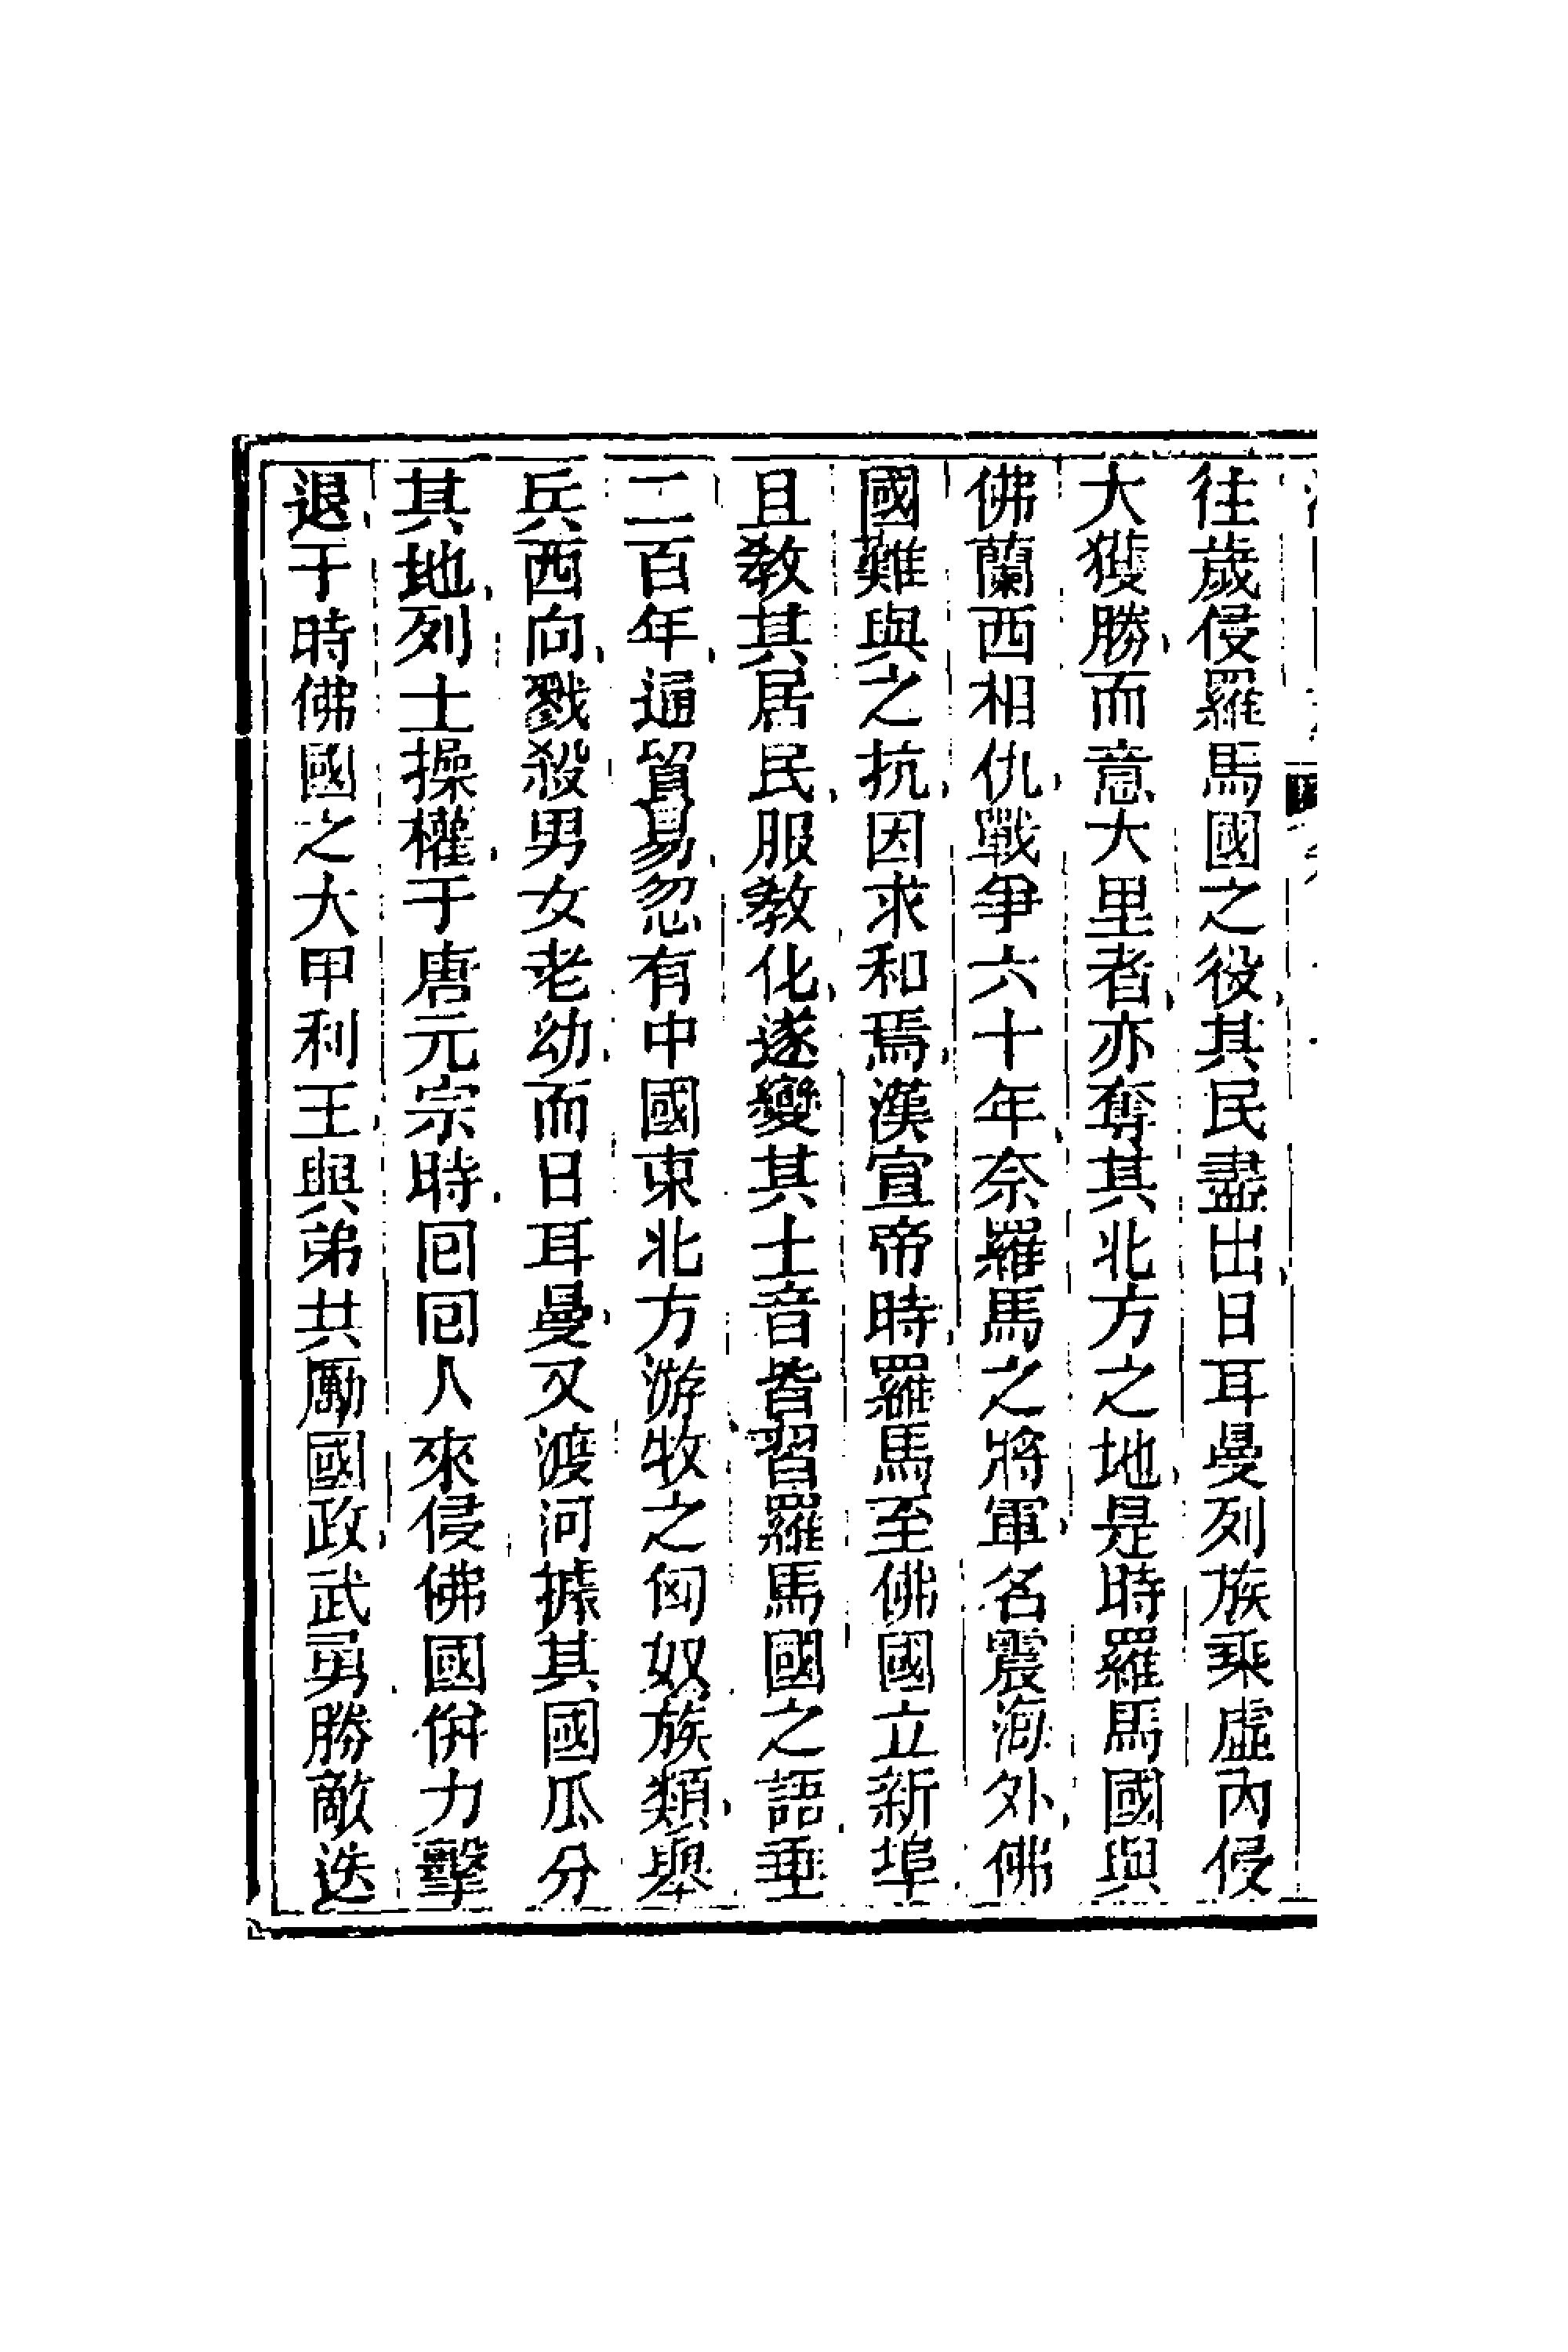 往歲侵羅馬國之役其民盡出日耳曼列族乘虛內侵
大獲勝而意大里者亦奪其北方之地是時羅馬國與
佛蘭西相仇戰爭六十年奈羅馬之將軍名震海外佛
國難與之抗因求和焉漢宣帝時羅馬至佛國立新埠
且敎其居民服敎化遂變其土音皆習羅馬國之語垂
二百年通貿易忽有中國東北方游牧之匈奴族類舉
兵西向戮殺男女老幼而日耳曼又渡河據其國瓜分
其地列土操權于唐元宗時回回人來侵佛國倂力擊
退于時佛國之大甲利王與弟共勵國政武勇勝敵迭